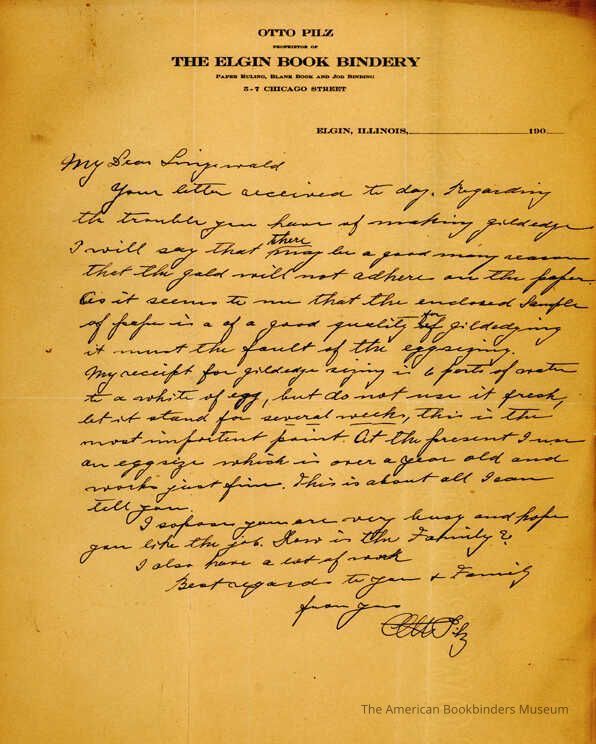 OTTO PILZ
PROPRIETOR OF
THE ELGIN BOOK BINDERY
PAPER RULING, BLANK BOOK AND JOB BINDING
5-7 CHICAGO STREET
ELGIN, ILLINOIS, 190
My Dear Lingewald
Your letter received to day. Regarding
the trouble you have of making gildedge
I will say that there may be a good many reason
that the gold will not adhere on the paper.
As it seems to me that the enclosed Sample
of paper is a of a good quality for gildedging
it must the fault of the eggsizing.
My receipt for gildedge sizing is 6 parts of water
to a white of egg, but do not use it fresh,
let it stand for several weeks, this is the
most importent point. At the present I use
an eggsize which is over a year old and
works just fine. This is about all I can
tell you.
I sopose you are very busy and hope
you like the job. How is the Family?
I also have a lot of work
Best regards to you & Family
from yours
Otto Pilz
The American Bookbinders Museum